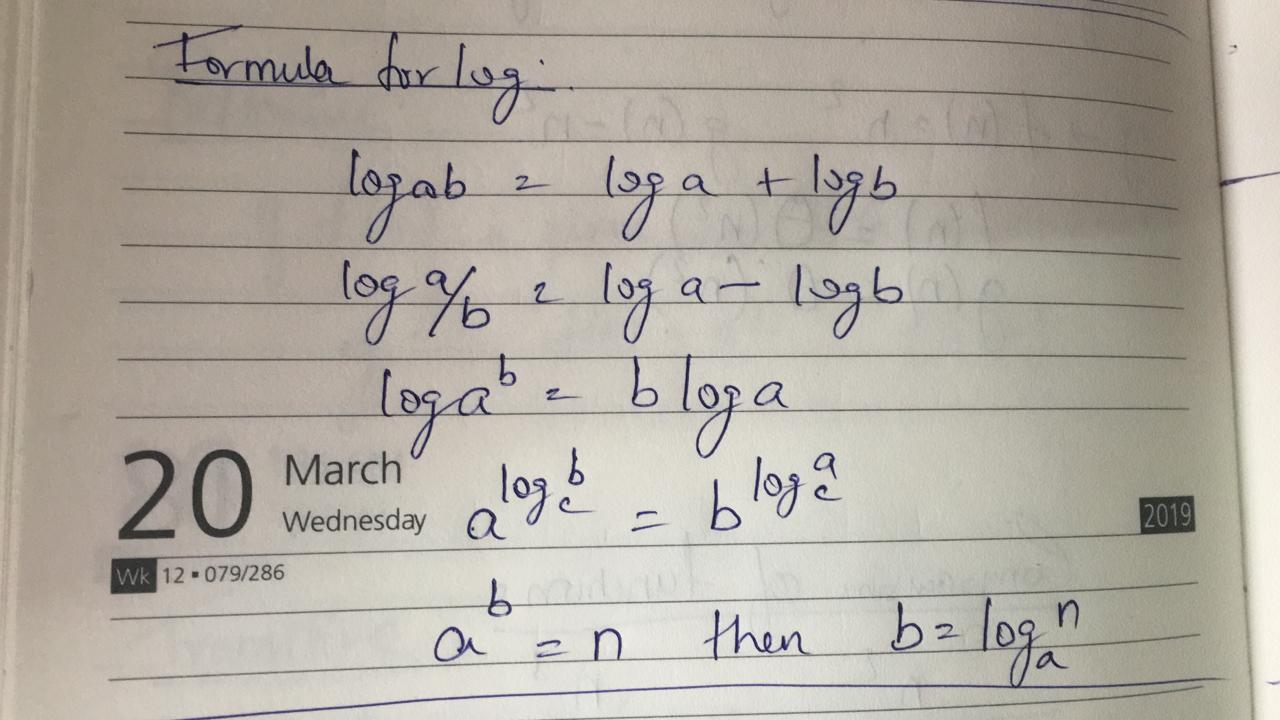 Formula for log:
log ab = log a + log b
log a/b = log a - log b
log a^b = b log a
20 March
Wednesday
a^(log_c b) = b^(log_c a)
2019
Wk 12 ▪ 079/286
a^b = n then b = log_a n